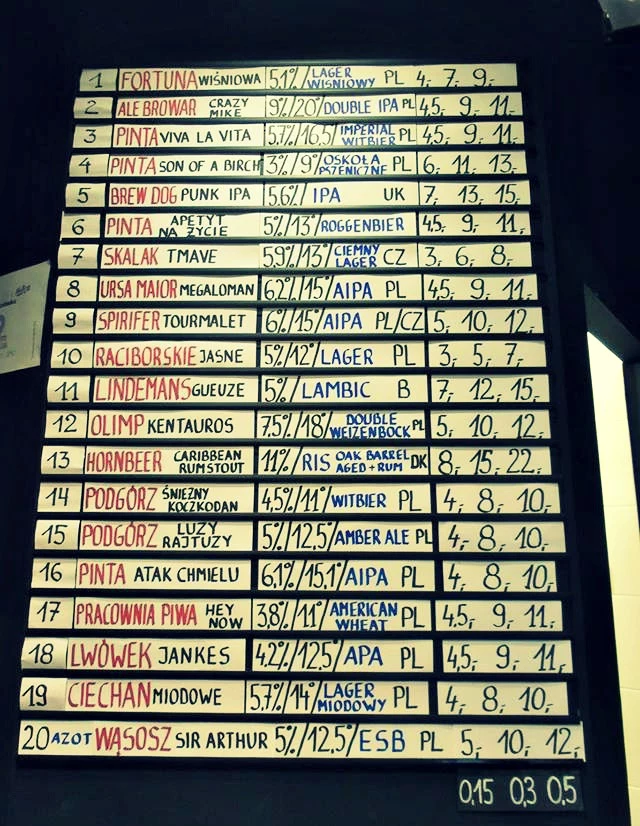 1 FORTUNA WIŚNIOWA 5,1%/LAGER WIŚNIOWY PL 4,- 7,- 9,-
2 ALE BROWAR CRAZY MIKE 9%/20°/DOUBLE IPA PL 4,5,- 9,- 11,-
3 PINTA VIVA LA VITA 5,7%/16,5°/IMPERIAL WITBIER PL 4,5,- 9,- 11,-
4 PINTA SON OF A BIRCH 3%/9°/OSKOŁA PSZENICZNE PL 6,- 11,- 13,-
5 BREW DOG PUNK IPA 5,6%/ IPA UK 7,- 13,- 15,-
6 PINTA APETYT NA ŻYCIE 5%/13°/ROGGENBIER 4,5,- 9,- 11,-
7 SKALAK TMAVE 5,9%/13°/CIEMNY LAGER CZ 3,- 6,- 8,-
8 URSA MAIOR MEGALOMAN 6,2%/15°/AIPA PL 4,5,- 9,- 11,-
9 SPIRIFER TOURMALET 6%/15°/AIPA PL/CZ 5,- 10,- 12,-
10 RACIBORSKIE JASNE 5%/12°/LAGER PL 3,- 5,- 7,-
11 LINDEMANS GUEUZE 5%/LAMBIC B 7,- 12,- 15,-
12 OLIMP KENTAUROS 7,5%/18°/DOUBLE WEIZENBOCK PL 5,- 10,- 12,-
13 HORNBEER CARIBBEAN RUMSTOUT 11%/RIS OAK BARREL AGED+RUM DK 8,- 15,- 22,-
14 PODGÓRZ ŚNIEŻNY KOCZKODAN 4,5%/11°/WITBIER PL 4,- 8,- 10,-
15 PODGÓRZ LUZY RAJTUZY 5%/12,5°/AMBER ALE PL 4,- 8,- 10,-
16 PINTA ATAK CHMIELU 6,1%/15,1°/AIPA PL 4,- 8,- 10,-
17 PRACOWNIA PIWA HEY NOW 3,8%/11°/AMERICAN WHEAT PL 4,5,- 9,- 11,-
18 LWÓWEK JANKES 4,2%/12,5°/APA PL 4,5,- 9,- 11,-
19 CIECHAN MIODOWE 5,7%/14°/LAGER MIODOWY PL 4,- 8,- 10,-
20 AZOT WĄSOSZ SIR ARTHUR 5%/12,5°/ESB PL 5,- 10,- 12,-
0,15 0,3 0,5